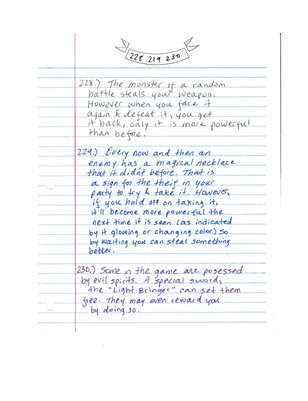 228 229 230
228.) The monster of a random
battle steals your weapon.
However when you face it
again & defeat it, you get
it back, only it is more powerful
than before.
229.) Every now and then an
enemy has a magical necklace
that it didn't before. That is
a sign for the theif in your
party to try & take it. However,
if you hold off on taking it,
it'll become more powerful the
next time it is seen (as indicated
by it glowing or changing color.) So
by waiting you can steal something
better.
230.) Some in the game are posessed
by evil spirits. A special sword,
the "Light Bringer" can set them
free. They may even reward you
by doing so.